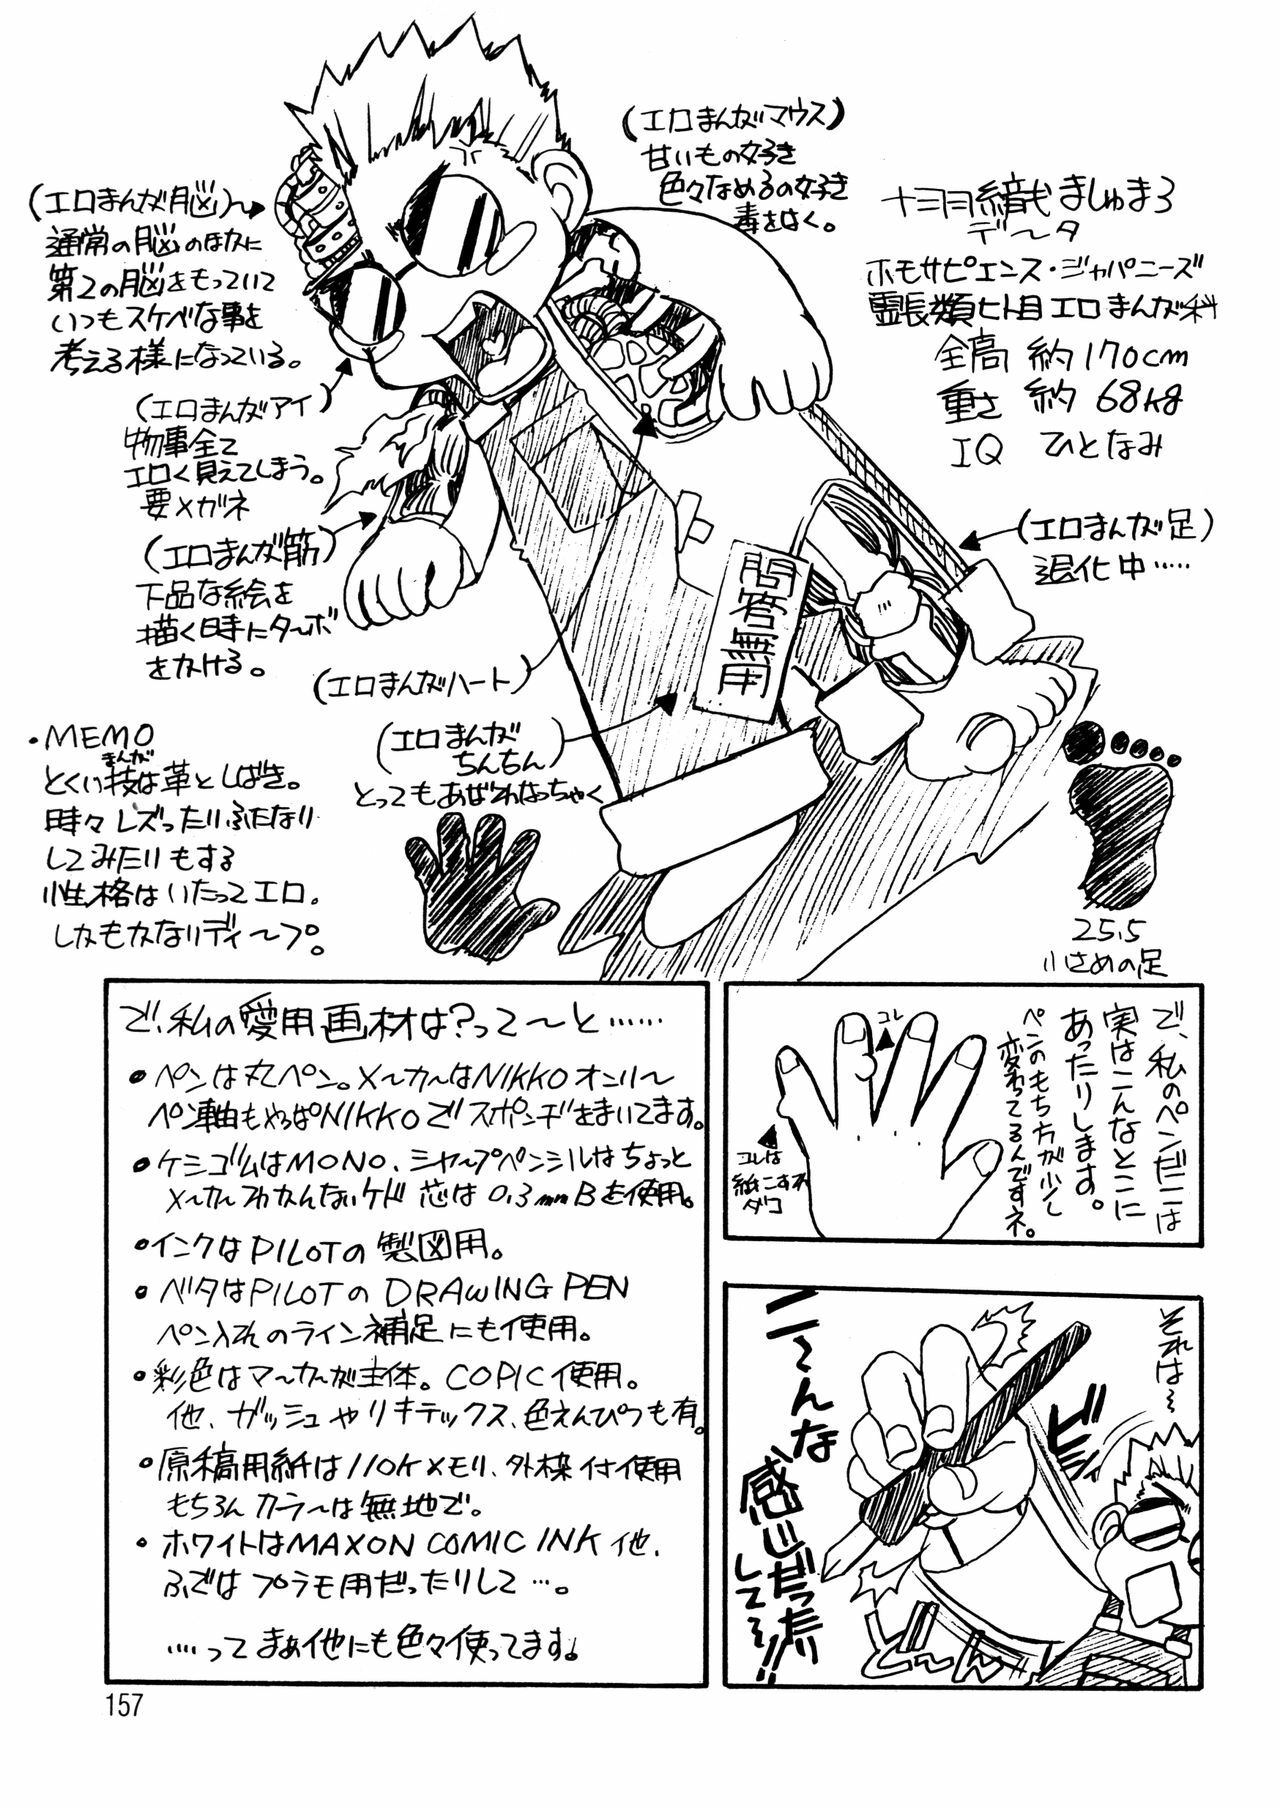 (エロまんがマウス)
甘いもの好き
色々なめるの好き
毒をはく。
十ヨヨ織ましゅまろ
デ〜タ
ホモサピエンス・ジャパニーズ
霊長類ヒト目エロまんが科
全高 約170cm
重さ 約 68kg
IQ ひとなみ
(エロまんが脳)〜
通常の脳のほかに
第2の脳をもっていて
いつもスケベな事を
考える様になっている。
(エロまんがアイ)
物事全て
エロく見えてしまう。
要メガネ
(エロまんが筋)
下品な絵を
描く時にターボ
をかける。
(エロまんが足)
退化中……
問答無用
(エロまんがハート)
(エロまんが
ちんちん)
とってもあばれはっちゃく
・MEMO
まんが
とくい技は革としばき。
時々レズったりふたなり
してみたりもする
性格はいたってエロ。
しかもかなりディ〜プ。
25.5
小さめの足
で、私の愛用画材は?って〜と……
•ペンは丸ペン。メ〜カ〜はNIKKOオンリ〜
ペン軸もやっぱNIKKOでスポンヂをまいてます。
•ケシゴムはMONO、シャ〜プペンシルはちょっと
メ〜カ〜わかんないケド 芯は0.3mmBを使用。
•インクはPILOTの製図用。
•ベタはPILOTのDRAWING PEN
ペン入れのライン補足にも使用。
•彩色はマ〜カ〜が主体。COPIC使用。
他、ガッシュやリキテックス、色えんぴつも有。
•原稿用紙は110Kメモリ、外枠付使用
もちろんカラ〜は無地で。
•ホワイトはMAXON COMIC INK他、
ふではプラモ用だったりして…。
……ってまぁ他にも色々使ってます。
で、私のペンだこは
実はこんなとこに
あったりします。
ペンのもち方が少し
変わってるんですネ。
コレ
コレは
紙こすれ
ダコ
それは〜
ビシ
ニ〜んな
感じだったり
して〜!!
ど〜ん
157